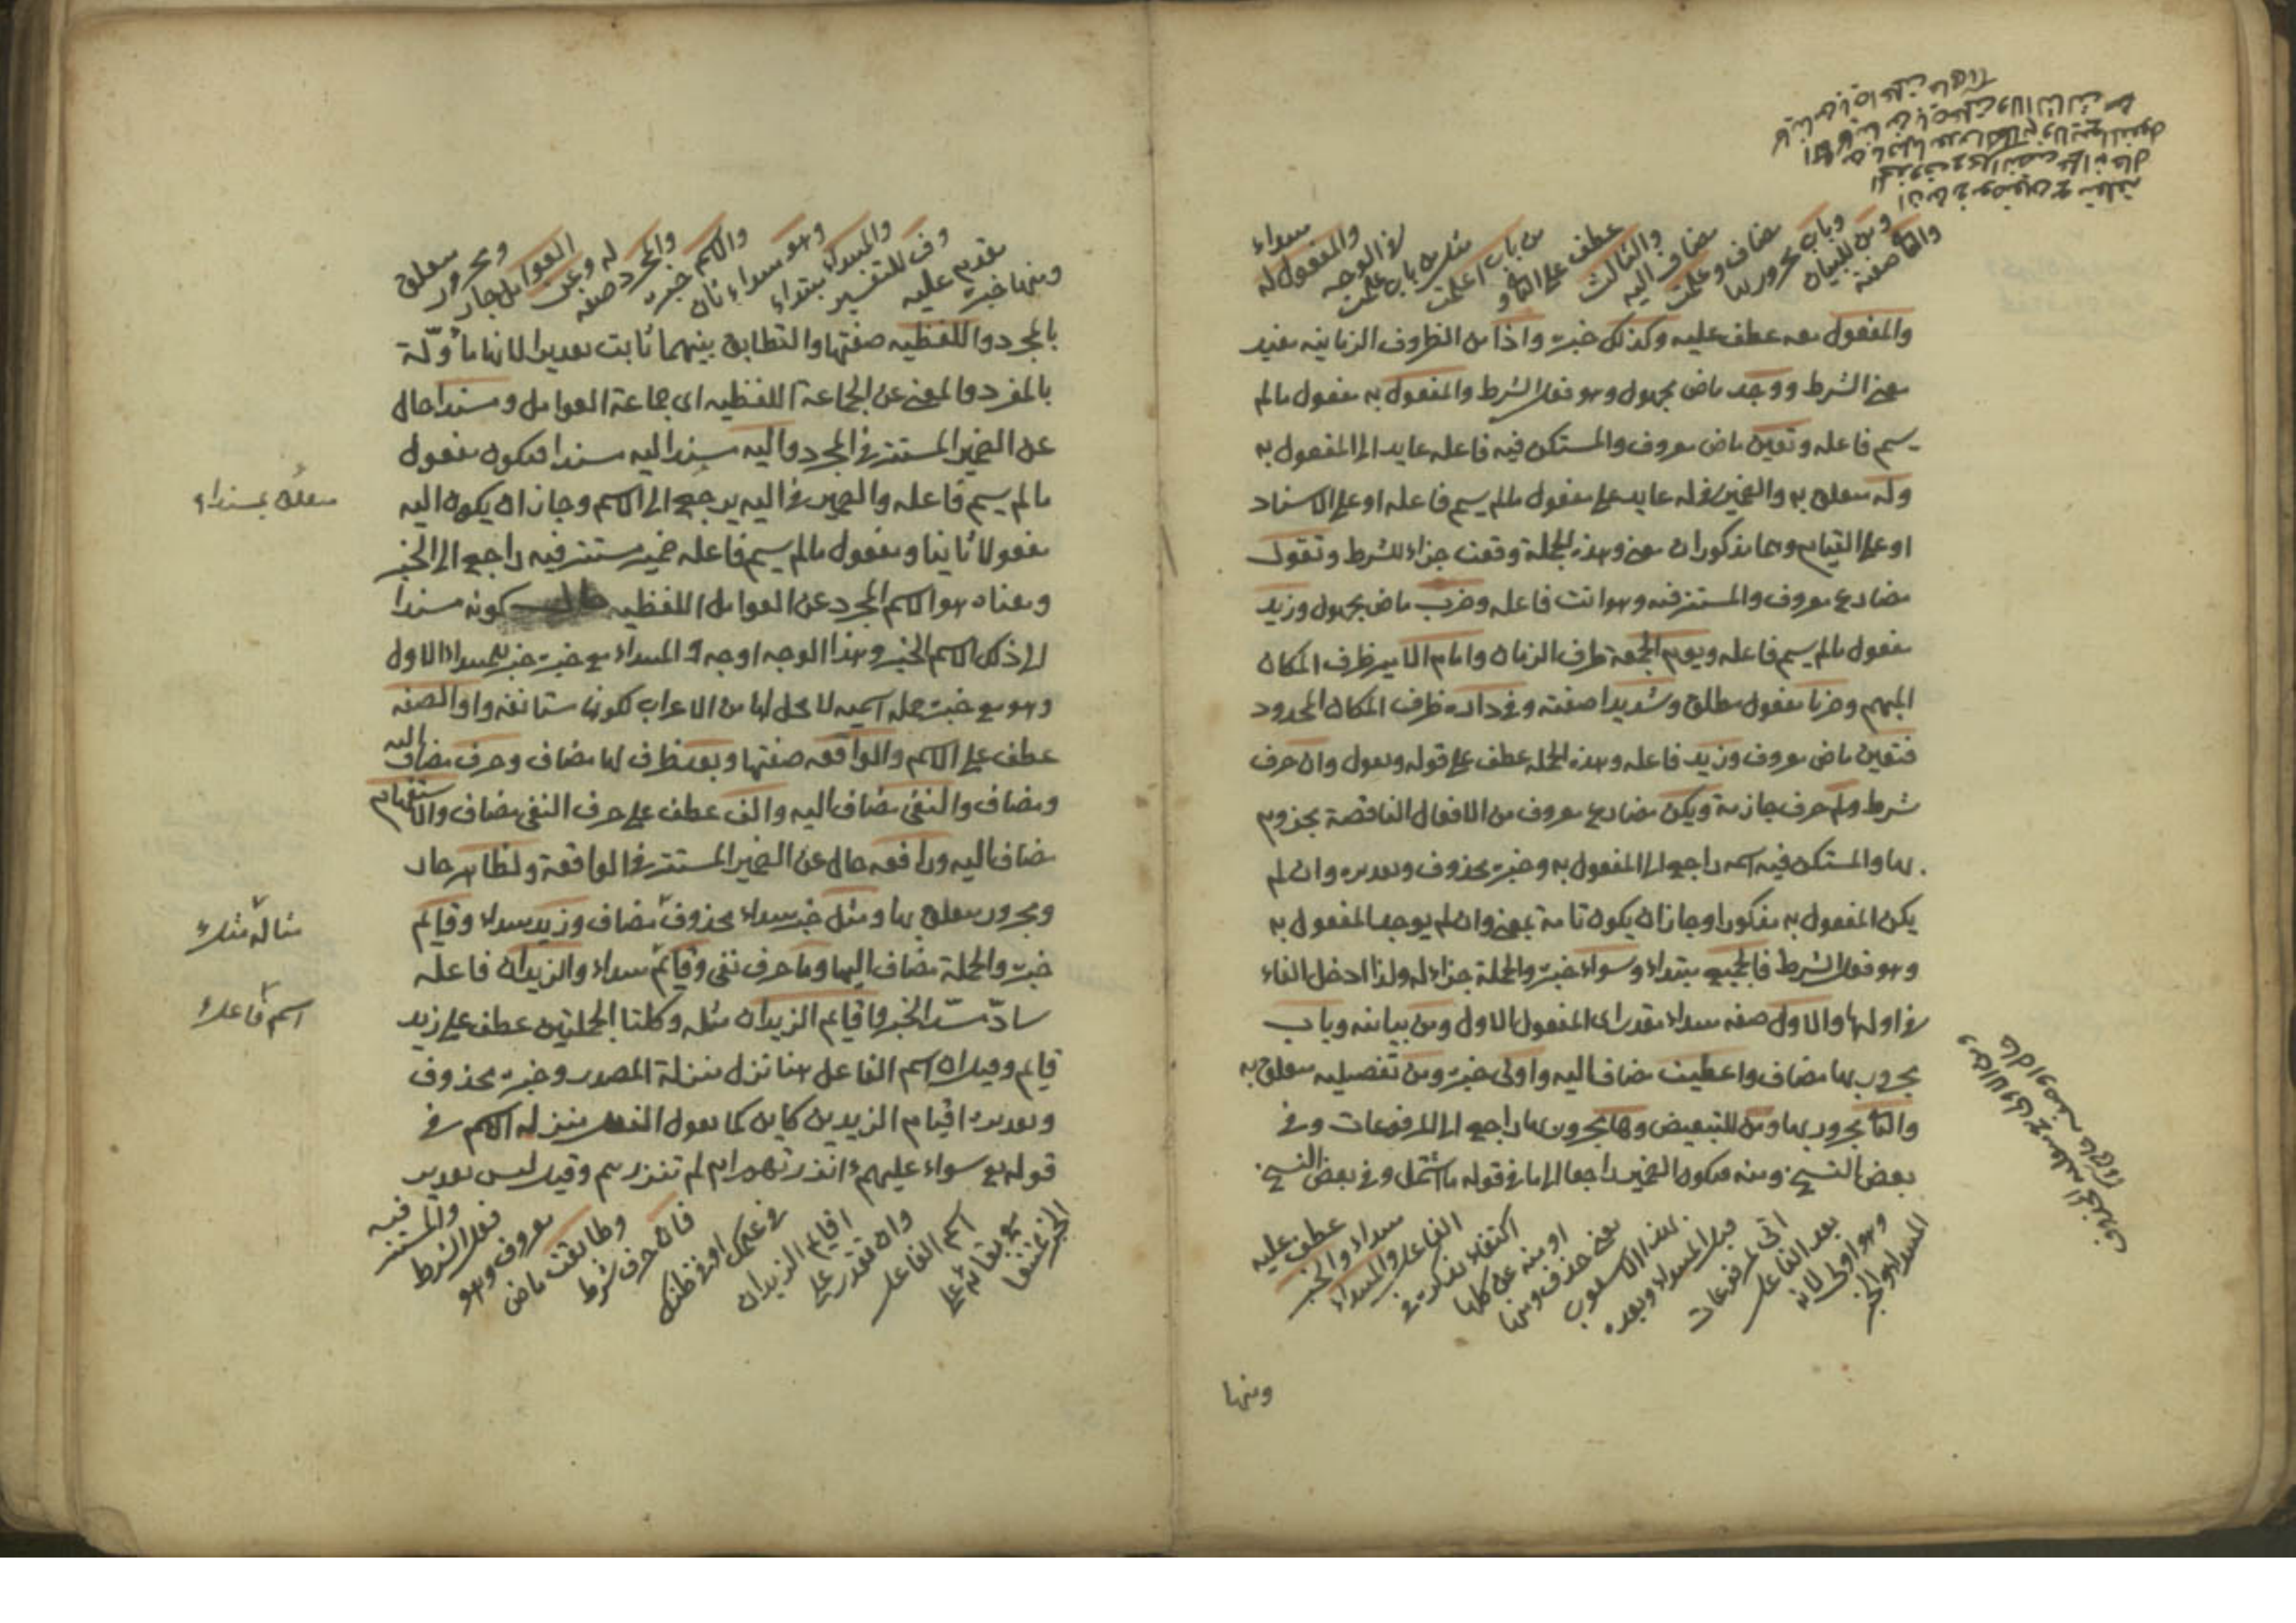 والثاني صفته
ومن للبيان
وباب مجرور بها
مضاف وعلمت
مضاف اليه
والثالث
عطف على الثاني و
من باب اعلمت
مثل من باب علمت
في الوجه
والمفعول له
مبتداء
والمفعول معه عطف عليه وكذلك خبره واذا من الظروف الزمانية مفيد
معنى الشرط ووجد ماض مجهول وهو فعل الشرط والمفعول به مفعول مالم
يسم فاعله وتعين ماض معروف والمستكن فيه فاعله عايد الى المفعول به
وله متعلق به والضمير في له عايد على مفعول مالم يسم فاعله او على الاسناد
او على القيام وهما مذكوران معنى وهذه الجملة وقعت جزاء للشرط وتقول
مضارع معروف والمستتر فيه وهو انت فاعله وضرب ماض مجهول وزيد
مفعول مالم يسم فاعله ويوم الجمعة ظرف الزمان وامام الامير ظرف المكان
المبهم وضربا مفعول مطلق وشديدا صفته وفي داره ظرف المكان المحدود
فتعين ماض معروف وزيد فاعله وهذه الجملة عطف على قوله وتقول وان حرف
شرط ولم حرف جازمة ويكن مضارع معروف من الافعال الناقصة مجزوم
بها والمستكن فيه اسمه راجع الى المفعول به وخبره محذوف وتقديره وان لم
يكن المفعول به مذكورا وجاز ان يكون تامة بمعنى وان لم يوجد المفعول به
وهو فعل الشرط فالجميع مبتداء وسواء خبره والجملة جزاء له ولذا ادخل الفاء
في اولها والاول صفة مبتداء مقدر اى المفعول الاول ومن بيانيه وباب
مجرور بها مضاف واعطيت مضاف اليه واولى خبره ومن تفصيليه متعلق به
والثاني مجرور بها ومن للتبعيض وها مجرور بها راجع الى المرفوعات وفي
بعض النسخ ومنه فيكون الضمير راجعا الى ما في قوله ما اشتمل وفي بعض النسخ
المبتداء والخبر
وهو اولى لانه
بعد الفاعل
اتى لمرفوعات
قبل المبتداء وبعده
بهذا الاسلوب
يعني حذف ومنها
او منه عن كلها
اكتفاء بذكره في
الفاعل والمبتداء
مبتداء والخبر
عطف عليه
ومنها
ومنها خبره
مقدم عليه
وف للتفسير
والمبتداء مبتداء
وهو مبتداء ثان
والاسم خبره
والمجرد صفه
له وعن
العوامل جار
ومجرور
متعلق
بالمجرد واللفظيه صفتها والتطابق بينهما ثابت تقديرا لانها مأولة
بالمفرد والمعنى عن الجماعة اللفظيه اى جماعة العوامل ومسندا حال
عن الضمير المستتر في المجرد واليه مسندا اليه مسندا فيكون مفعول
مالم يسم فاعله والضمير في اليه يرجع الى الاسم وجاز ان يكون اليه
مفعولا ثانيا ومفعول مالم يسم فاعله ضمير مستتر فيه راجع الى الخبر
ومعناه هو الاسم المجرد عن العوامل اللفظيه كونه مسندا
الى ذلك الاسم الخبر وهذا الوجه اوجه والمبتداء مع خبره خبر للمبتداء الاول
وهو مع خبره جملة اسميه لا محل لها من الاعراب لكونها مستانفه واو الصفه
عطف على الاسم والواقعه صفتها وبعد ظرف لها مضاف وحرف مضاف اليه
ومضاف والنفى مضاف اليه والف عطف على حرف النفى مضاف والاستفهام
مضاف اليه ورافعه حال عن الضمير المستتر في الواقعة ولظاهر جار
ومجرور متعلق بها ومثل خبر مبتداء محذوف مضاف وزيد مبتداء وقايم
خبره والجملة مضاف اليها وما حرف نفى وقايم مبتداء والزيدان فاعله
سادّ مسدّ الخبر واقايم الزيدان مثله وكلتا الجملتين عطف على زيد
قايم وقيل ان اسم الفاعل هنا نزل منزلة المصدر وخبره محذوف
وتقديره اقيام الزيدين كاين كما تقول الفعل منزله الاسم في
قوله تع سواء عليهم ءانذرتهم ام لم تنذرهم وقيل ليس تقدير
الخبر مستغنيا
هو بقائم على
اسم الفاعل
وان تقدر على
اقايم الزيدان
في علمك او في ظنك
فان حرف شرط
وطابقت ماض
معروف وهو
فعل الشرط
والمستتر
فيه
متعلق بمسنداء
مثاله مثله
اسم فاعله